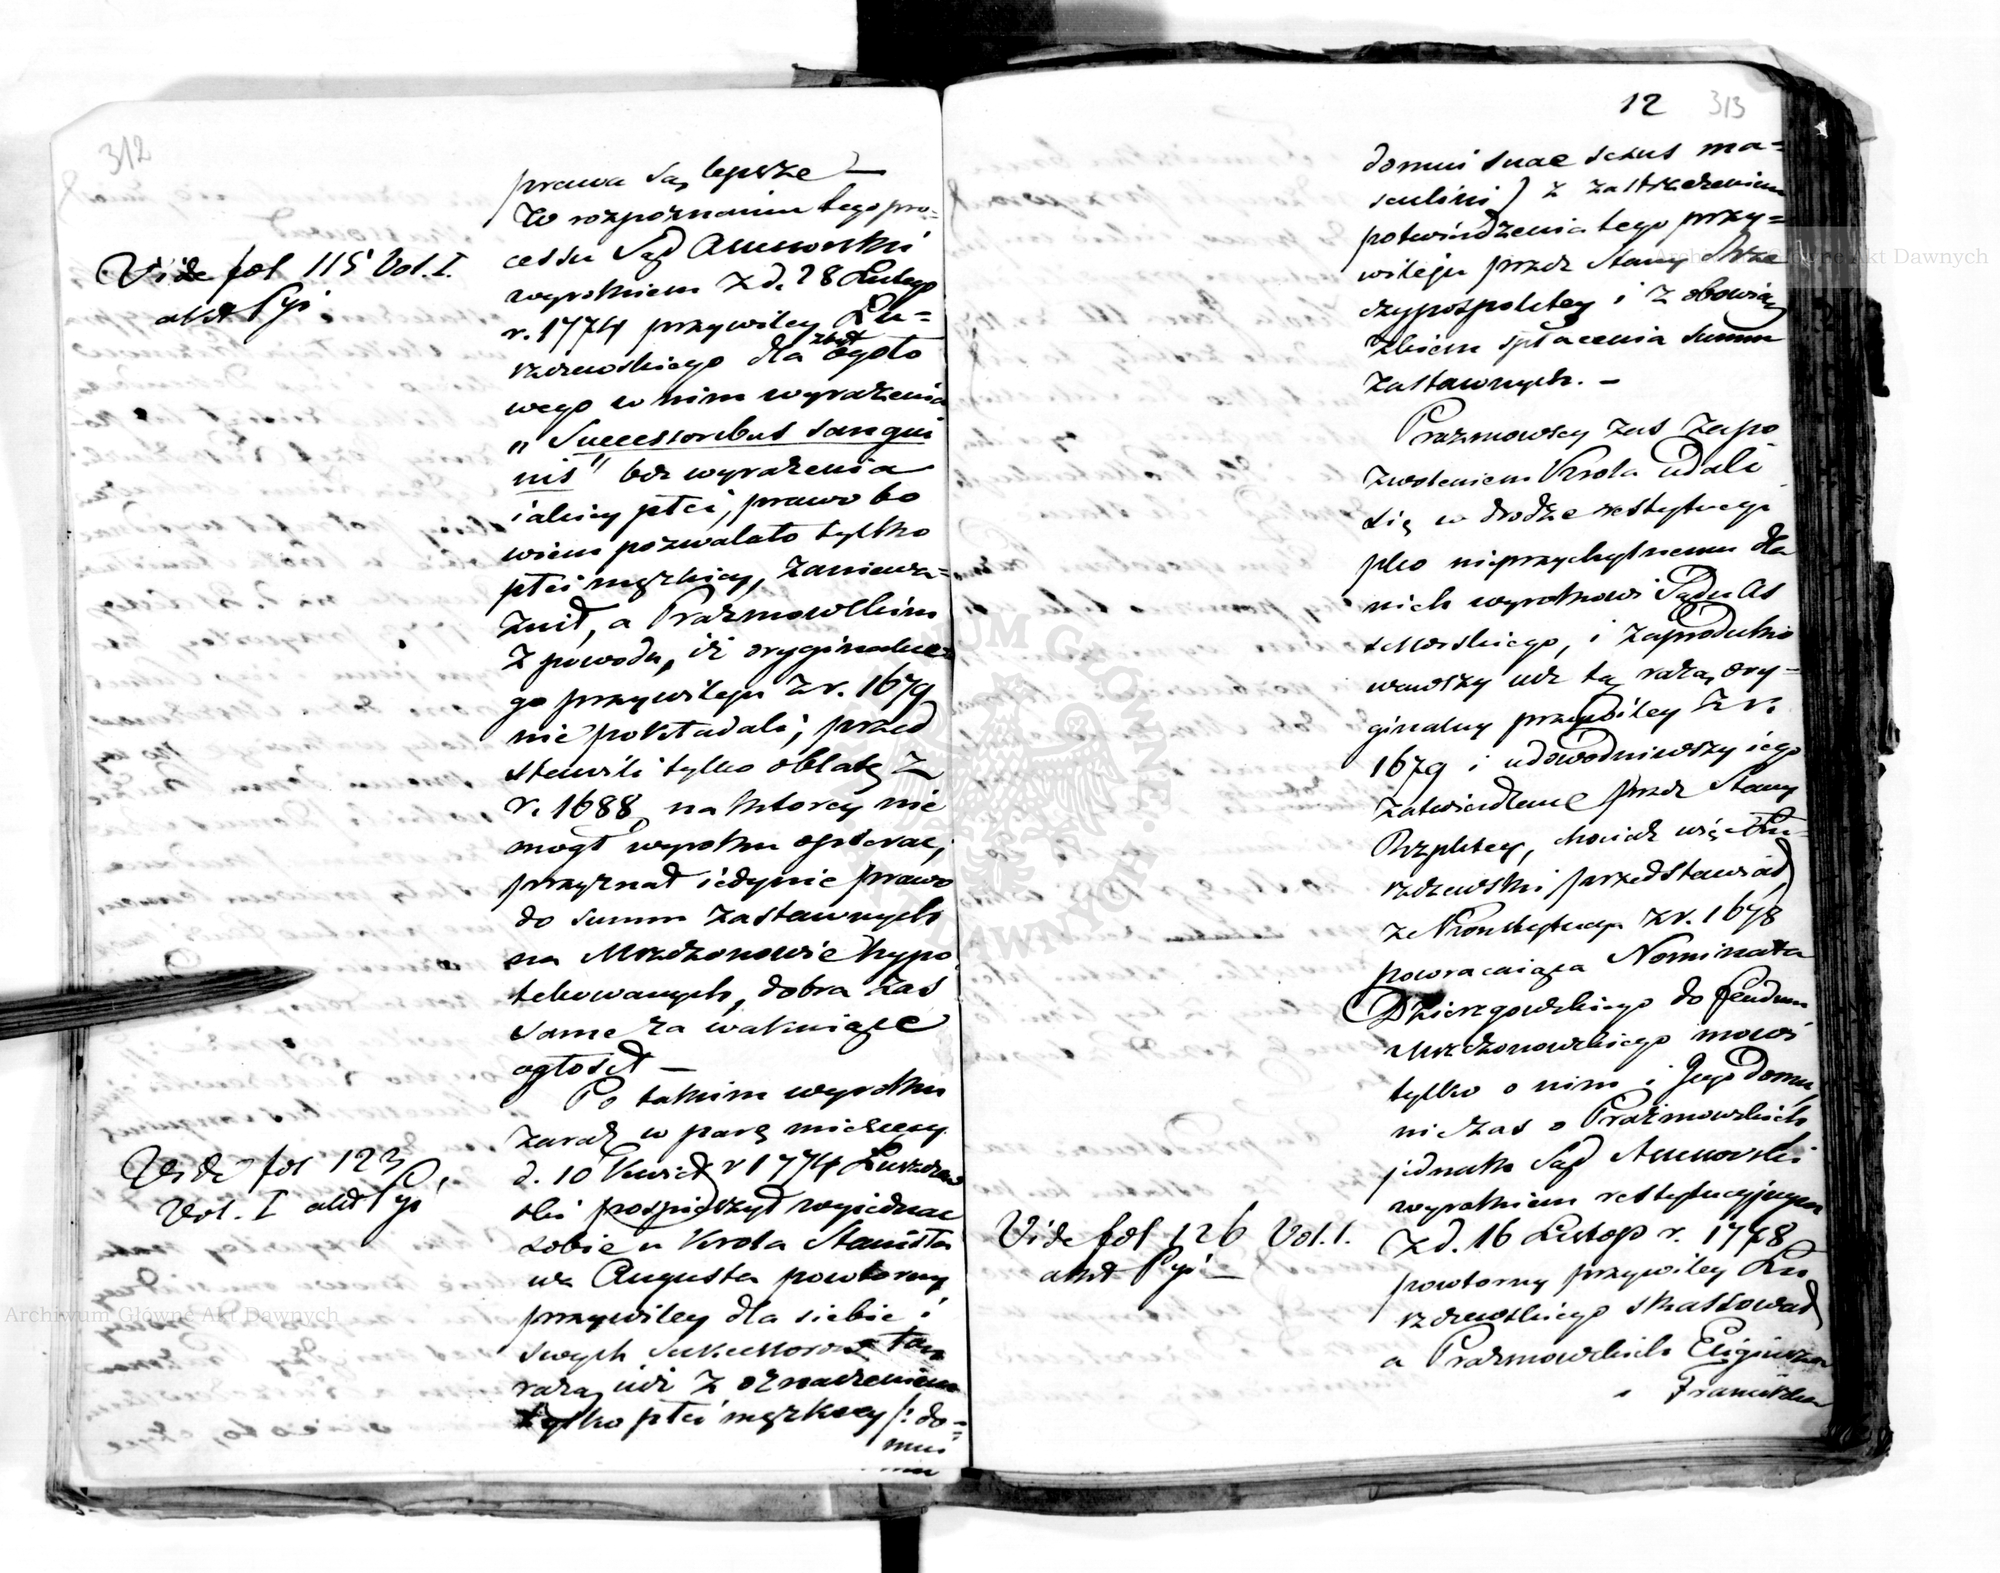 312
prawa są lepsze —
W rozpoznaniu tego pro=
cessu Sąd Assessorski
wyrokiem z d. 28 Lutego
r. 1774 przywiley Łu=
szczewskiego dla zbyt ogoło
wego w nim wyrażenia
„Successoribus sangui
nis" bez wyrażenia
iakiey płci, prawo bo
wiem pozwalało tylko
płci męzkiey, zaniewa=
żnił, a Prażmowskim
z powodu, iż oryginalne=
go przywileju z r. 1679
nie pokładali, przed
stawili tylko oblatę z
r. 1688 na ktorey nie
mogł wyroku opierać,
przyznał iedynie prawo
do summ zastawnych
na Mszczonowie hypo
tekowanych, dobra zaś
same za wakuiące
ogłosił —
Po takim wyroku
zaraz w parę miesięcy
d. 10 Kwiet r 1774 Łuszczew
ski pospieszył wyiednać
sobie u Krola Stanisła
wa Augusta powtorny
przywiley dla siebie i
swych sukcessorow tą
razą iuż z oznaczeniem
tylko płci męzkiey /: do=
mui
Vide fol 115 Vol. I.
akt Pyi
Vide fol 123
Vol. I akt Pyi
12 313
domui suae sexus ma=
sculini) z zastrzeżeniem
potwierdzenia tego przy=
wileju przez Stany Rze
czypospolitey i z obowią
zkiem spłacenia summ
zastawnych. —
Prażmowscy zaś za po
zwoleniem Krola udali
się w drodze restytucyi
pko nieprzychylnemu dla
nich wyrokowi Sądu As
sessorskiego, i zaproduko
wawszy uż tą razą ory=
ginalny przywiley z r.
1679 i udowodniwszy iego
zatwierdzenie przez Stany
Rzpltey, chociaż więc Łu=
szczewski przedstawiał,
że Konstytucya z r. 1678
powracaiąca Nominata
Dzierzgowskiego do feudum
Mszczonowskiego mowi
tylko o nim i Jego Domu,
nie zaś o Prażmowskich
jednak Sąd Assessorski
wyrokiem restytucyjnym
z d. 16 Listop r. 1778
powtorny przywiley Łu
szczewskiego skassował
a Prażmowskich Eugiusza
i Franciszka
Vide fol 126 Vol. I.
akt Pyi —